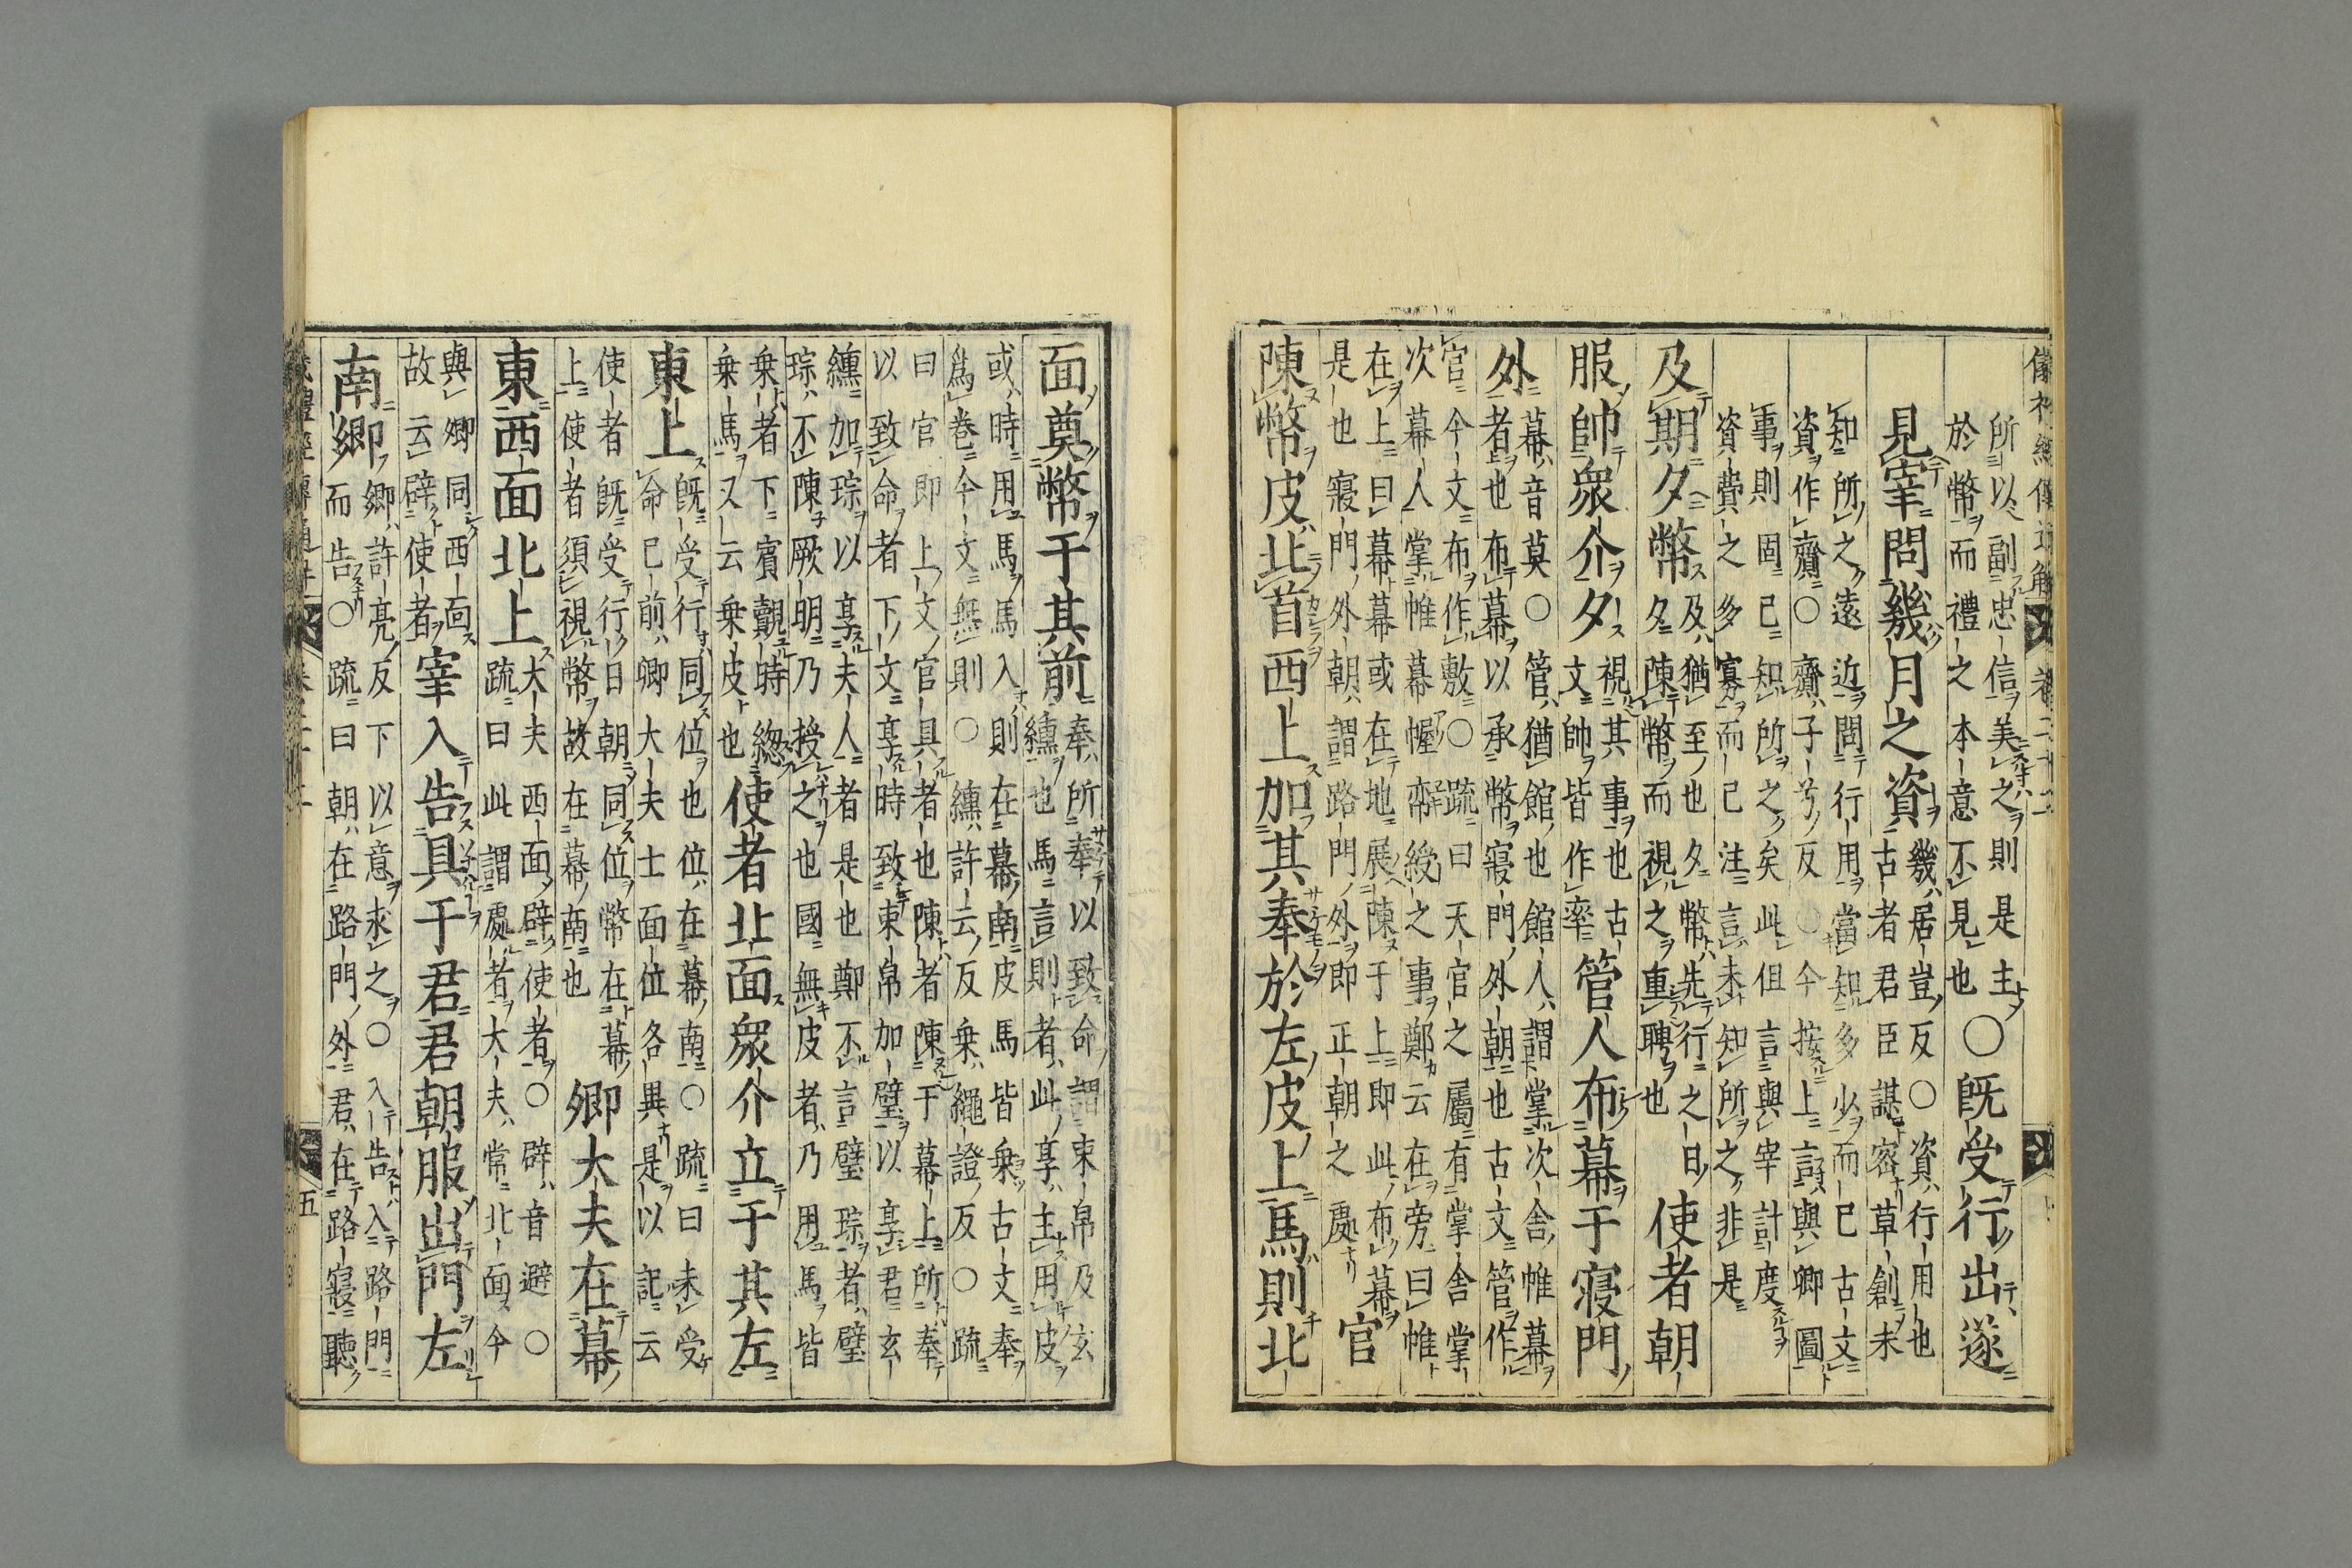 所以副忠信美之則是主
於幣而禮之本意不見也
〇既受行出遂
見宰問幾月之資
幾居豈反〇資行用也
古者君臣謀密草創未
知所之遠近問行用當知多少而已古文
資作齎〇齎子兮反〇今按上言與卿圖
事則固已知所之矣此但言與宰計度
資費之多寡而已注言未知所之非是
及期夕幣
及猶至也夕幣先行之日
夕陳幣而視之重聘也
使者朝
服帥眾介夕
視其事也古
文帥皆作率
管人布幕于寢門
外
幕音莫〇管猶館也館人謂掌次舍帷幕
者也布幕以承幣寢門外朝也古文管作
官今文布作敷〇疏曰天官之屬有掌舍掌
次幕人掌帷幕幄帟綬之事鄭云在旁曰帷
在上曰幕幕或在地展陳于上即此布幕
是也寢門外朝謂路門外即正朝之處
官
陳幣皮北首西上加其奉於左皮上馬則北
面奠幣于其前
奉所奉以致命謂束帛及玄
纁也馬言則者此享主用皮
或時用馬馬入則在幕南皮馬皆乗古文奉
爲卷今文無則〇纁許云反乗繩證反〇疏
曰官即上文官具者也陳者陳于幕上所奉
以致命者下文享時致束帛加璧以享君玄
纁加琮以享夫人者是也鄭不言璧琮者璧
琮不陳厥明乃授之也國無皮者乃用馬皆
乗者下賓覿時緫
乗馬又云乗皮也
使者北面眾介立于其左
東上
既受行同位也位在幕南〇疏曰未受
命已前卿大夫士面位各異是以記云
使者既受行日朝同位幣在幕
上使者須視幣故在幕南也
卿大夫在幕
東西面北上
大夫西面辟使者〇辟音避〇
疏曰此謂處者大夫常北面今
與卿同西面
故云辟使者
宰入告具于君君朝服出門左
南鄉
鄉許亮反下以意求之〇入告入路門
而告〇疏曰朝在路門外君在路寢聽
五